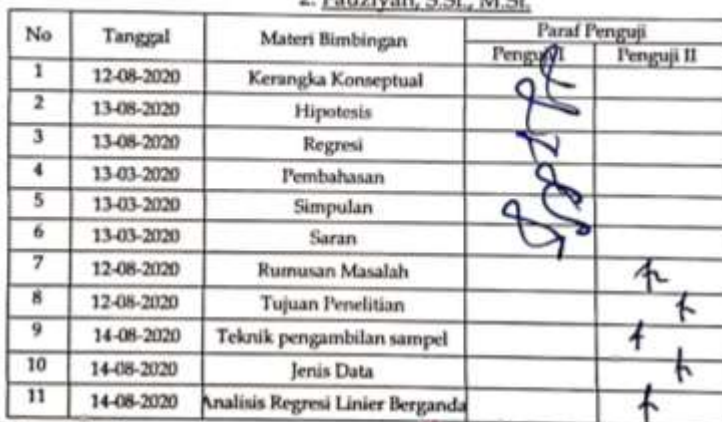 2. Fauziyah, S.Si., M.Si.
No Tanggal Materi Bimbingan Paraf Penguji
Penguji I Penguji II
1 12-08-2020 Kerangka Konseptual
2 13-08-2020 Hipotesis
3 13-08-2020 Regresi
4 13-03-2020 Pembahasan
5 13-03-2020 Simpulan
6 13-03-2020 Saran
7 12-08-2020 Rumusan Masalah
8 12-08-2020 Tujuan Penelitian
9 14-08-2020 Teknik pengambilan sampel
10 14-08-2020 Jenis Data
11 14-08-2020 Analisis Regresi Linier Berganda